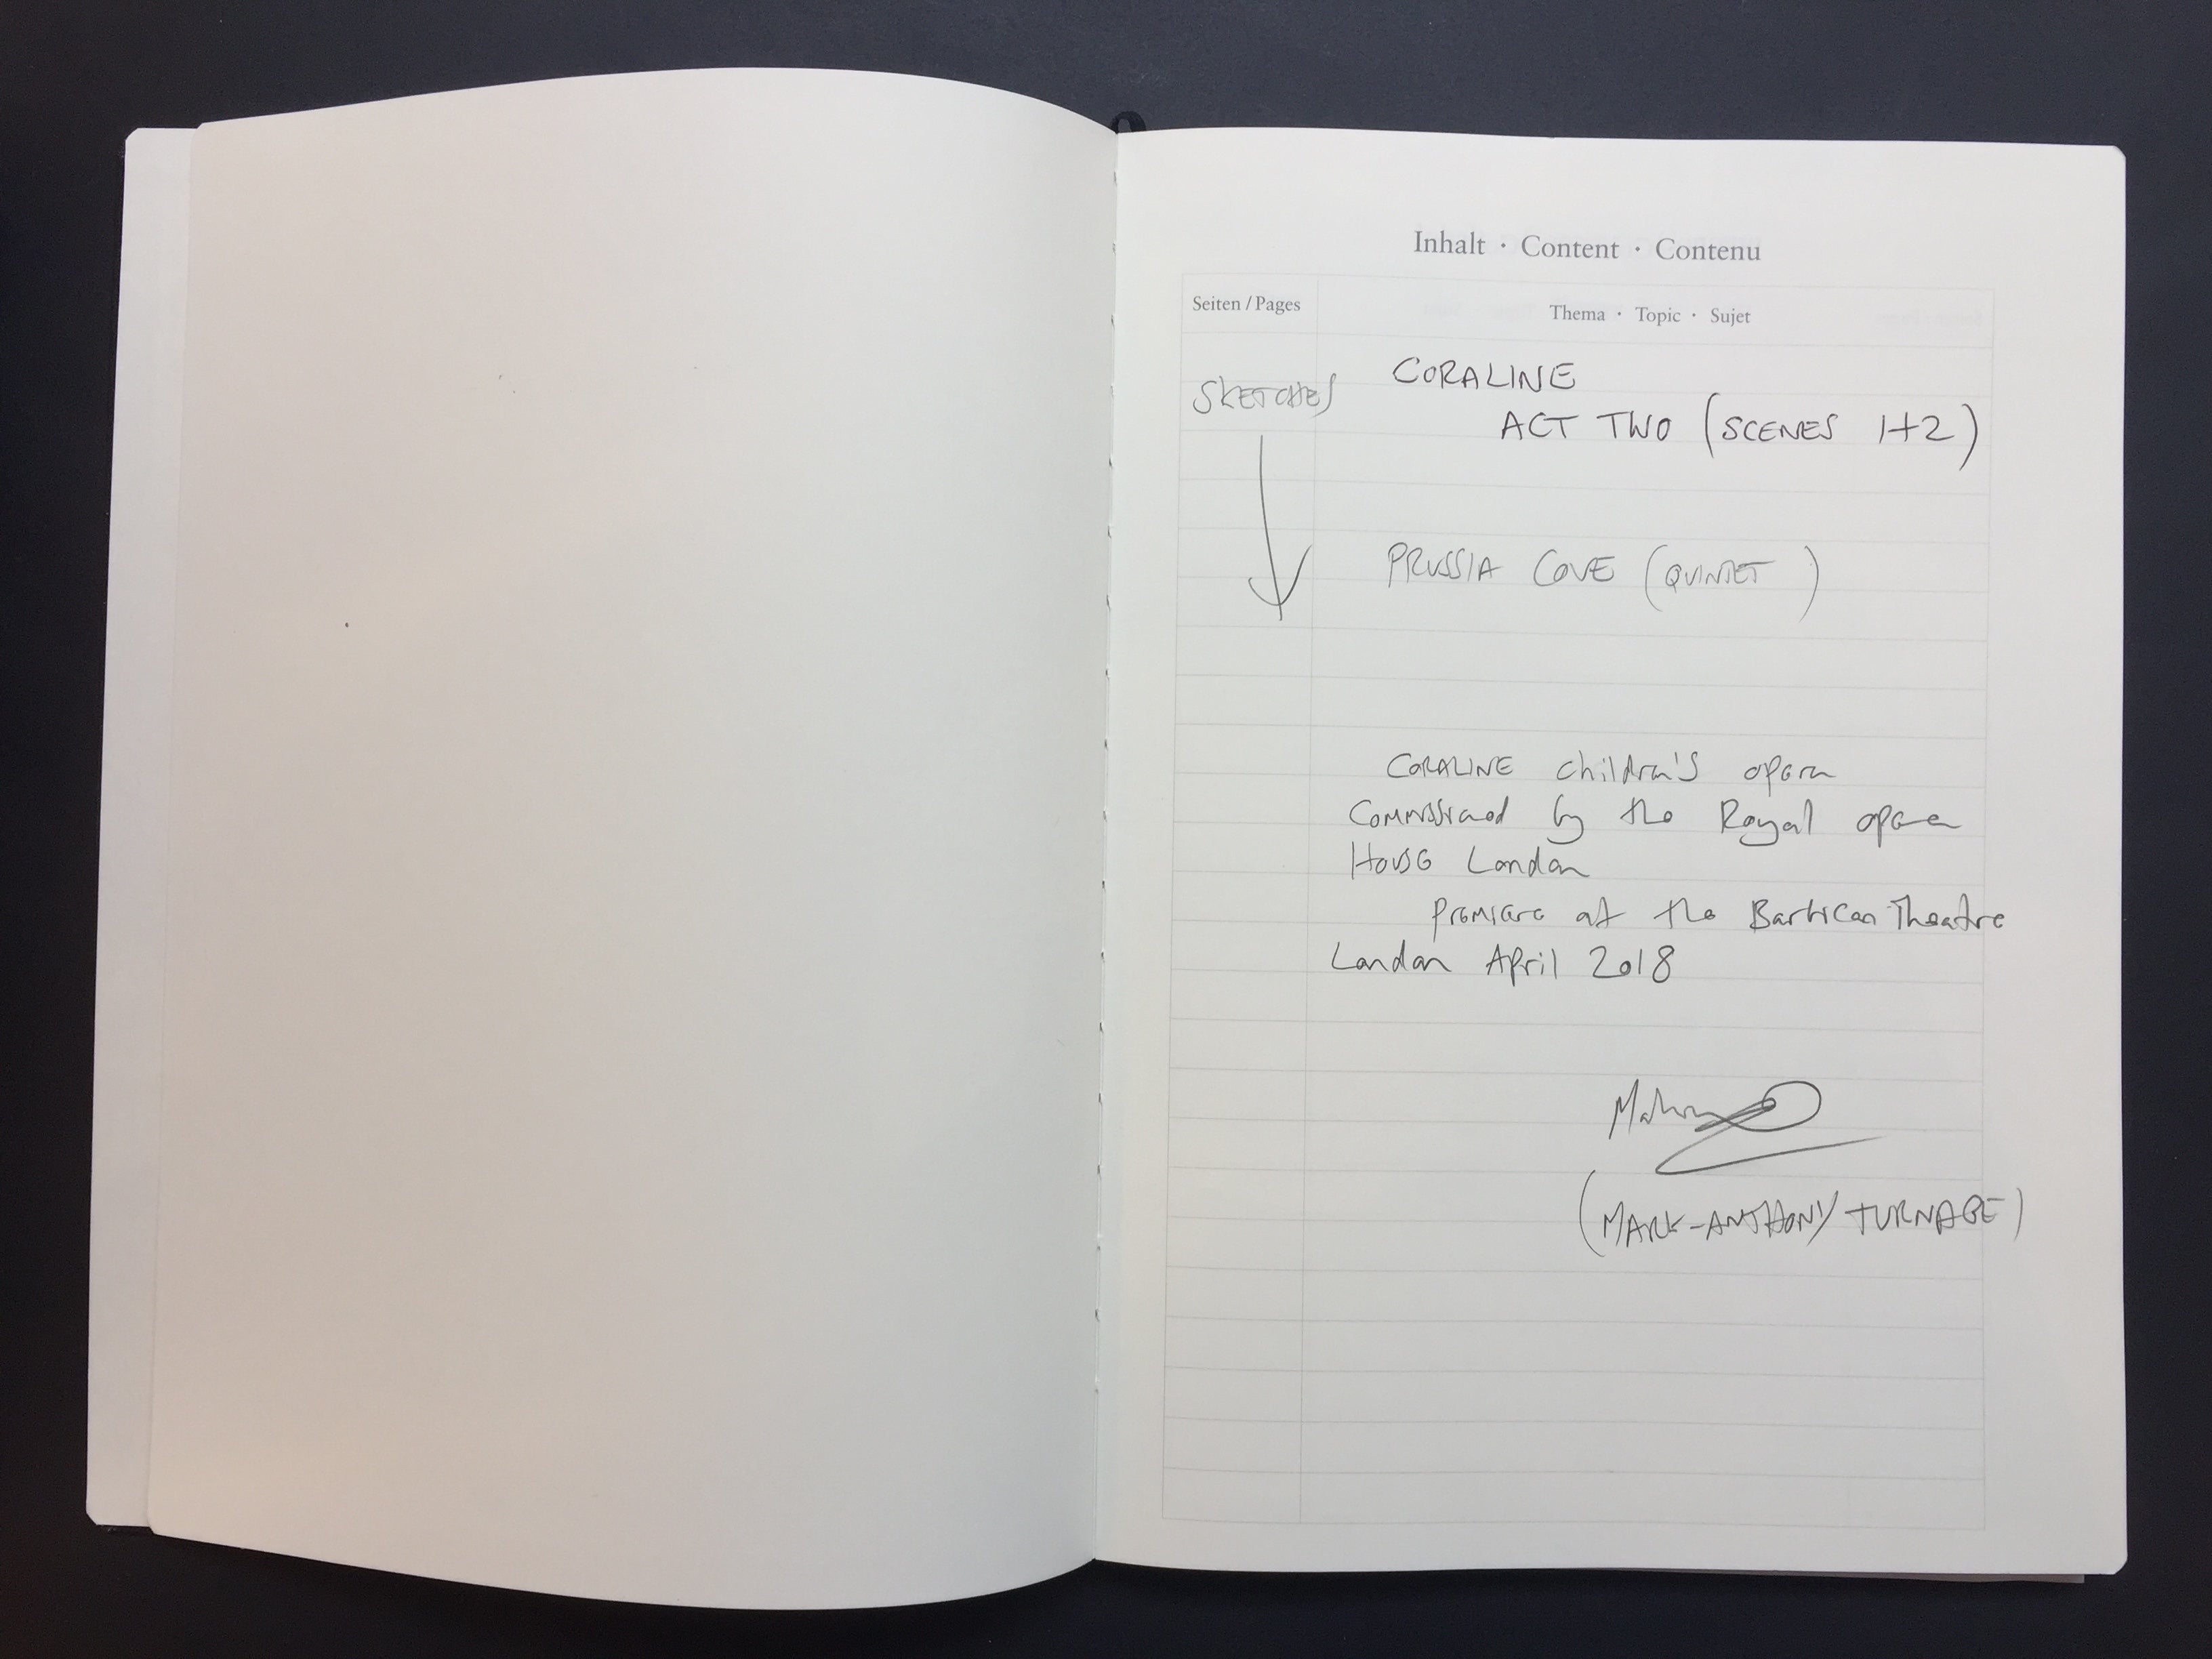 Inhalt · Content · Contenu
Seiten / Pages
Thema · Topic · Sujet
SKETCHES
CORALINE
ACT TWO (SCENES 1+2)
PRUSSIA COVE (QUINTET)
CORALINE children's opera
Commissioned by the Royal opera
House London
Premiere at the Barbican Theatre
London April 2018
(MARK-ANTHONY TURNAGE)